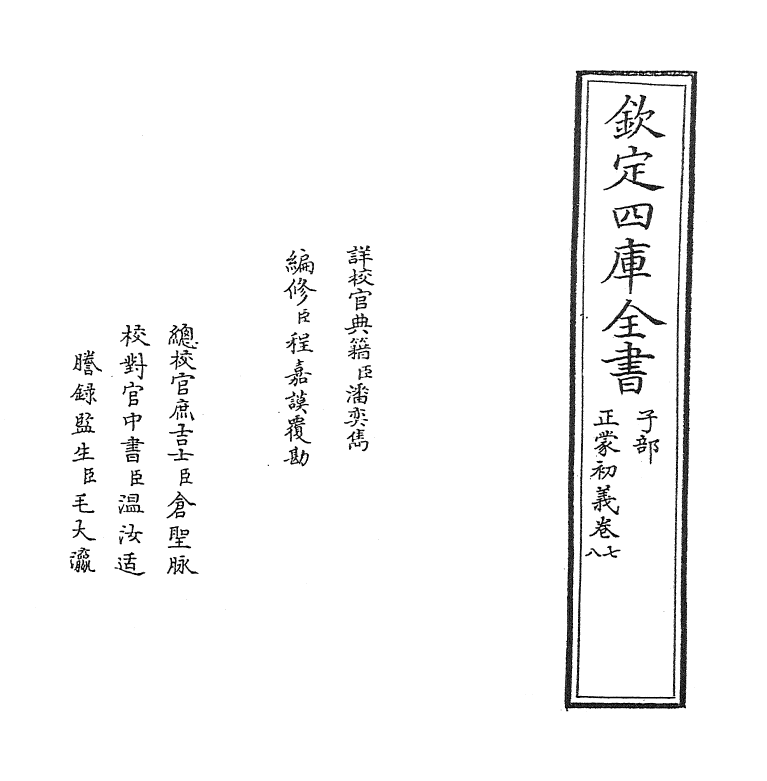 欽定四庫全書
子部
正蒙初義卷七八
詳校官典籍臣潘奕雋
編修臣程嘉謨覆勘
總校官庶吉士臣倉聖脉
校對官中書臣溫汝适
謄録監生臣毛大瀛